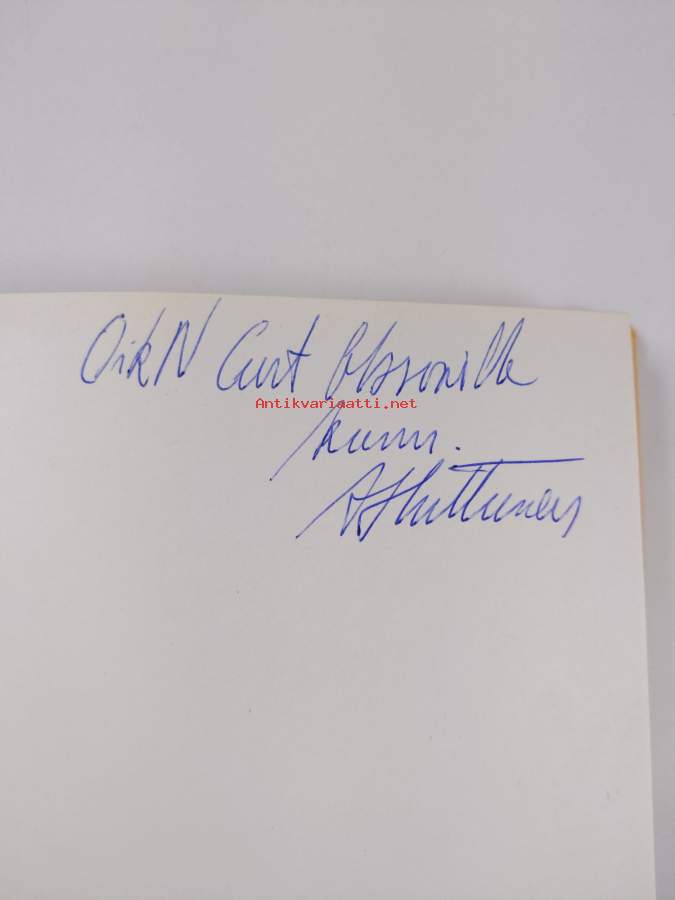 OikN Curt Olssonille
Antikvariaatti.net
kunn.